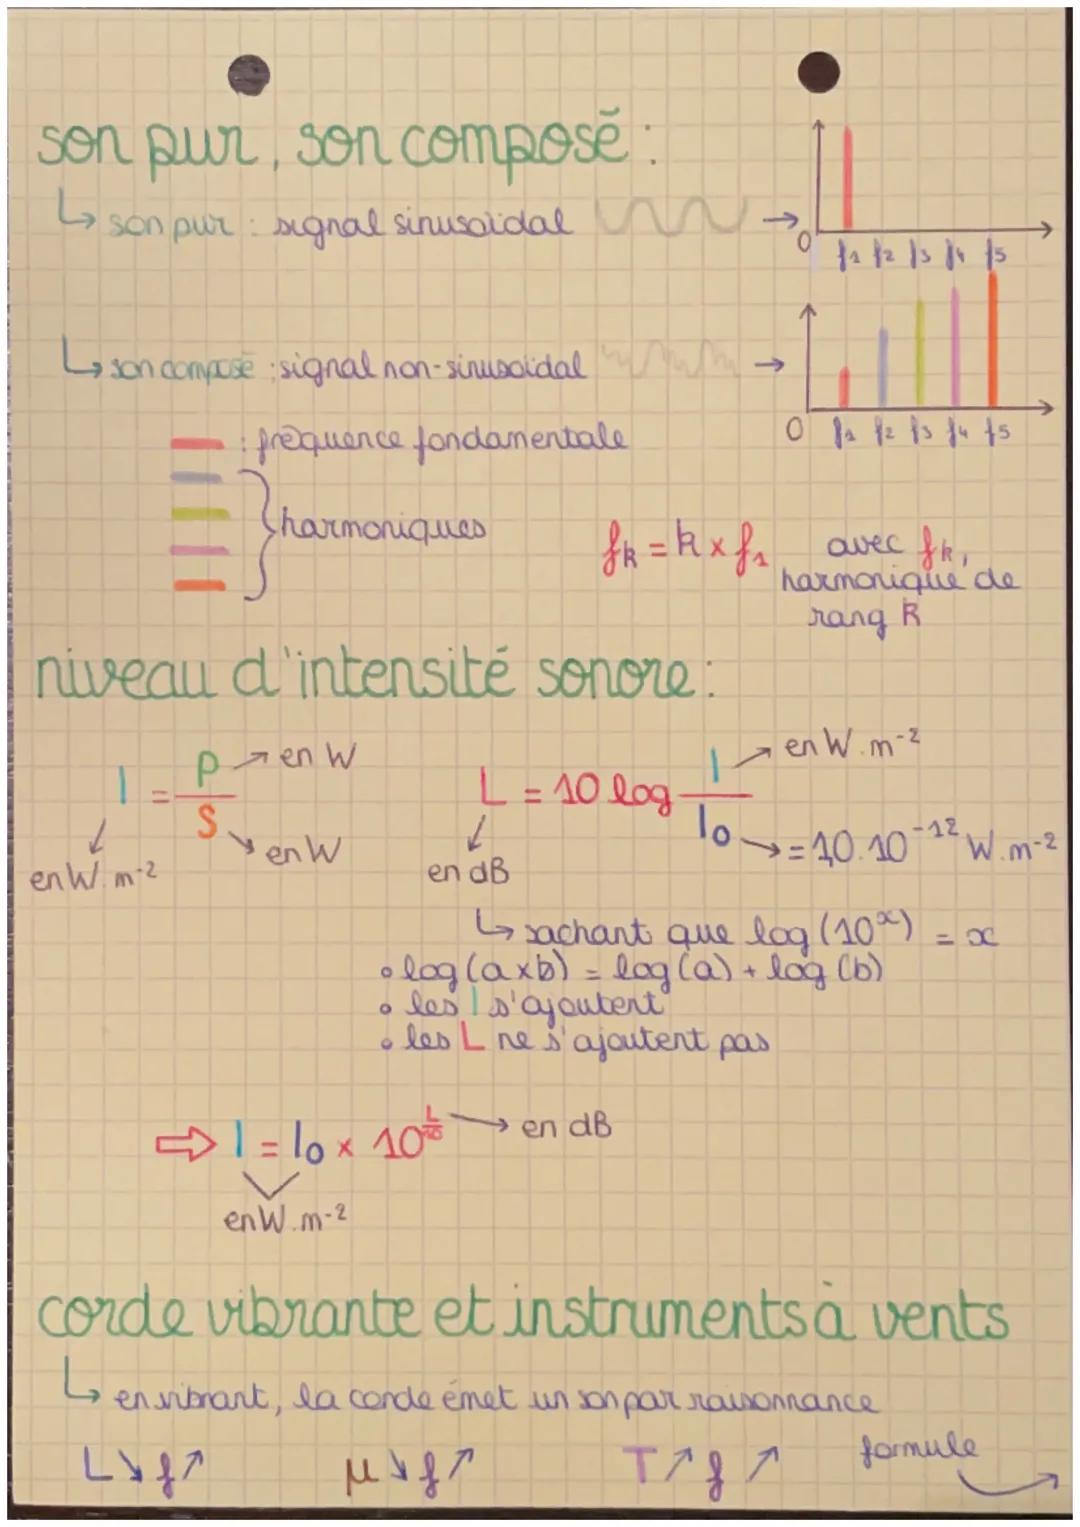 son pur, son composé :
↳ son pur : signal sinusoïdal →
0 f1 f2 f3 f4 f5
↳ son composé : signal non-sinusoïdal →
0 f1 f2 f3 f4 f5
: fréquence fondamentale
harmoniques
fk = k x f1 avec fk,
harmonique de
rang k
niveau d'intensité sonore :
I = P/S
→ en W
→ en W
en W.m-2
L = 10 log I/I0
→ en W.m-2
→ = 10.10-12 W.m-2
en dB
↳ sachant que log (10x) = x
• log (axb) = log (a) + log (b)
• les I s'ajoutent
• les L ne s'ajoutent pas
⇨ I = I0 x 10 L/10 → en dB
en W.m-2
corde vibrante et instruments à vents
↳ en vibrant, la corde émet un son par raisonnance
L↘ f↗ μ↘ f↗ T↗ f↗ formule →